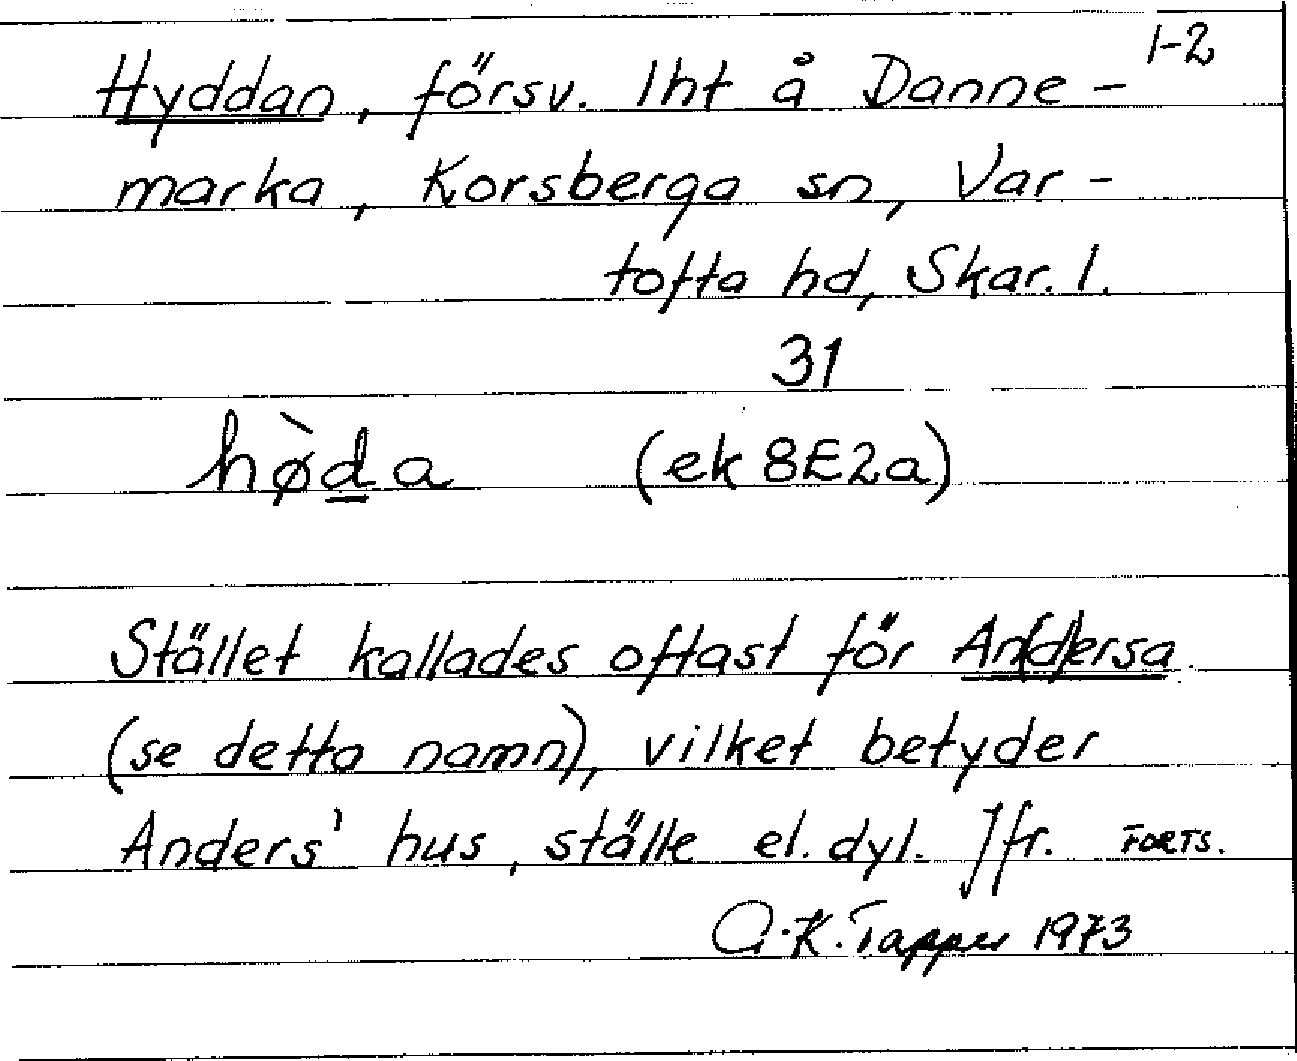 1-2
Hyddan, försv. lht å Danne-
marka, Korsberga sn, Var-
tofta hd, Skar. l.
31
hø̀d̲a (ek 8E2a)
Stället kallades oftast för An(d)ersa
(se detta namn), vilket betyder
Anders' hus, ställe el. dyl. Jfr. FORTS.
A.K. Tapper 1973